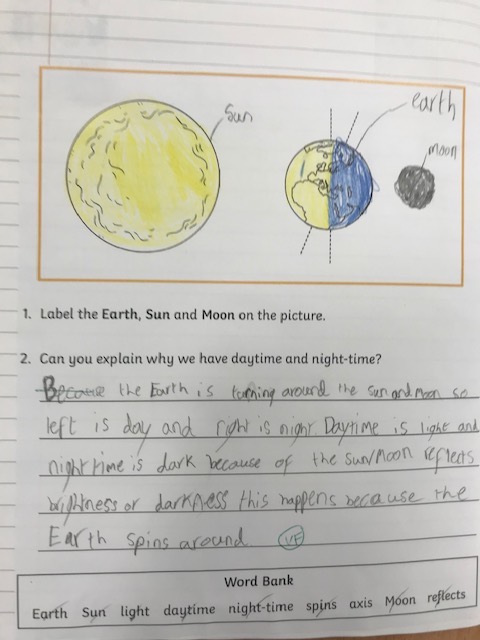 Sun
earth
moon
1. Label the Earth, Sun and Moon on the picture.
2. Can you explain why we have daytime and night-time?
Because the Earth is turning around the sun and moon so
left is day and right is night. Daytime is light and
night time is dark because of the sun/Moon reflects
brightness or darkness this happens because the
Earth spins around VF
Word Bank
Earth Sun light daytime night-time spins axis Moon reflects